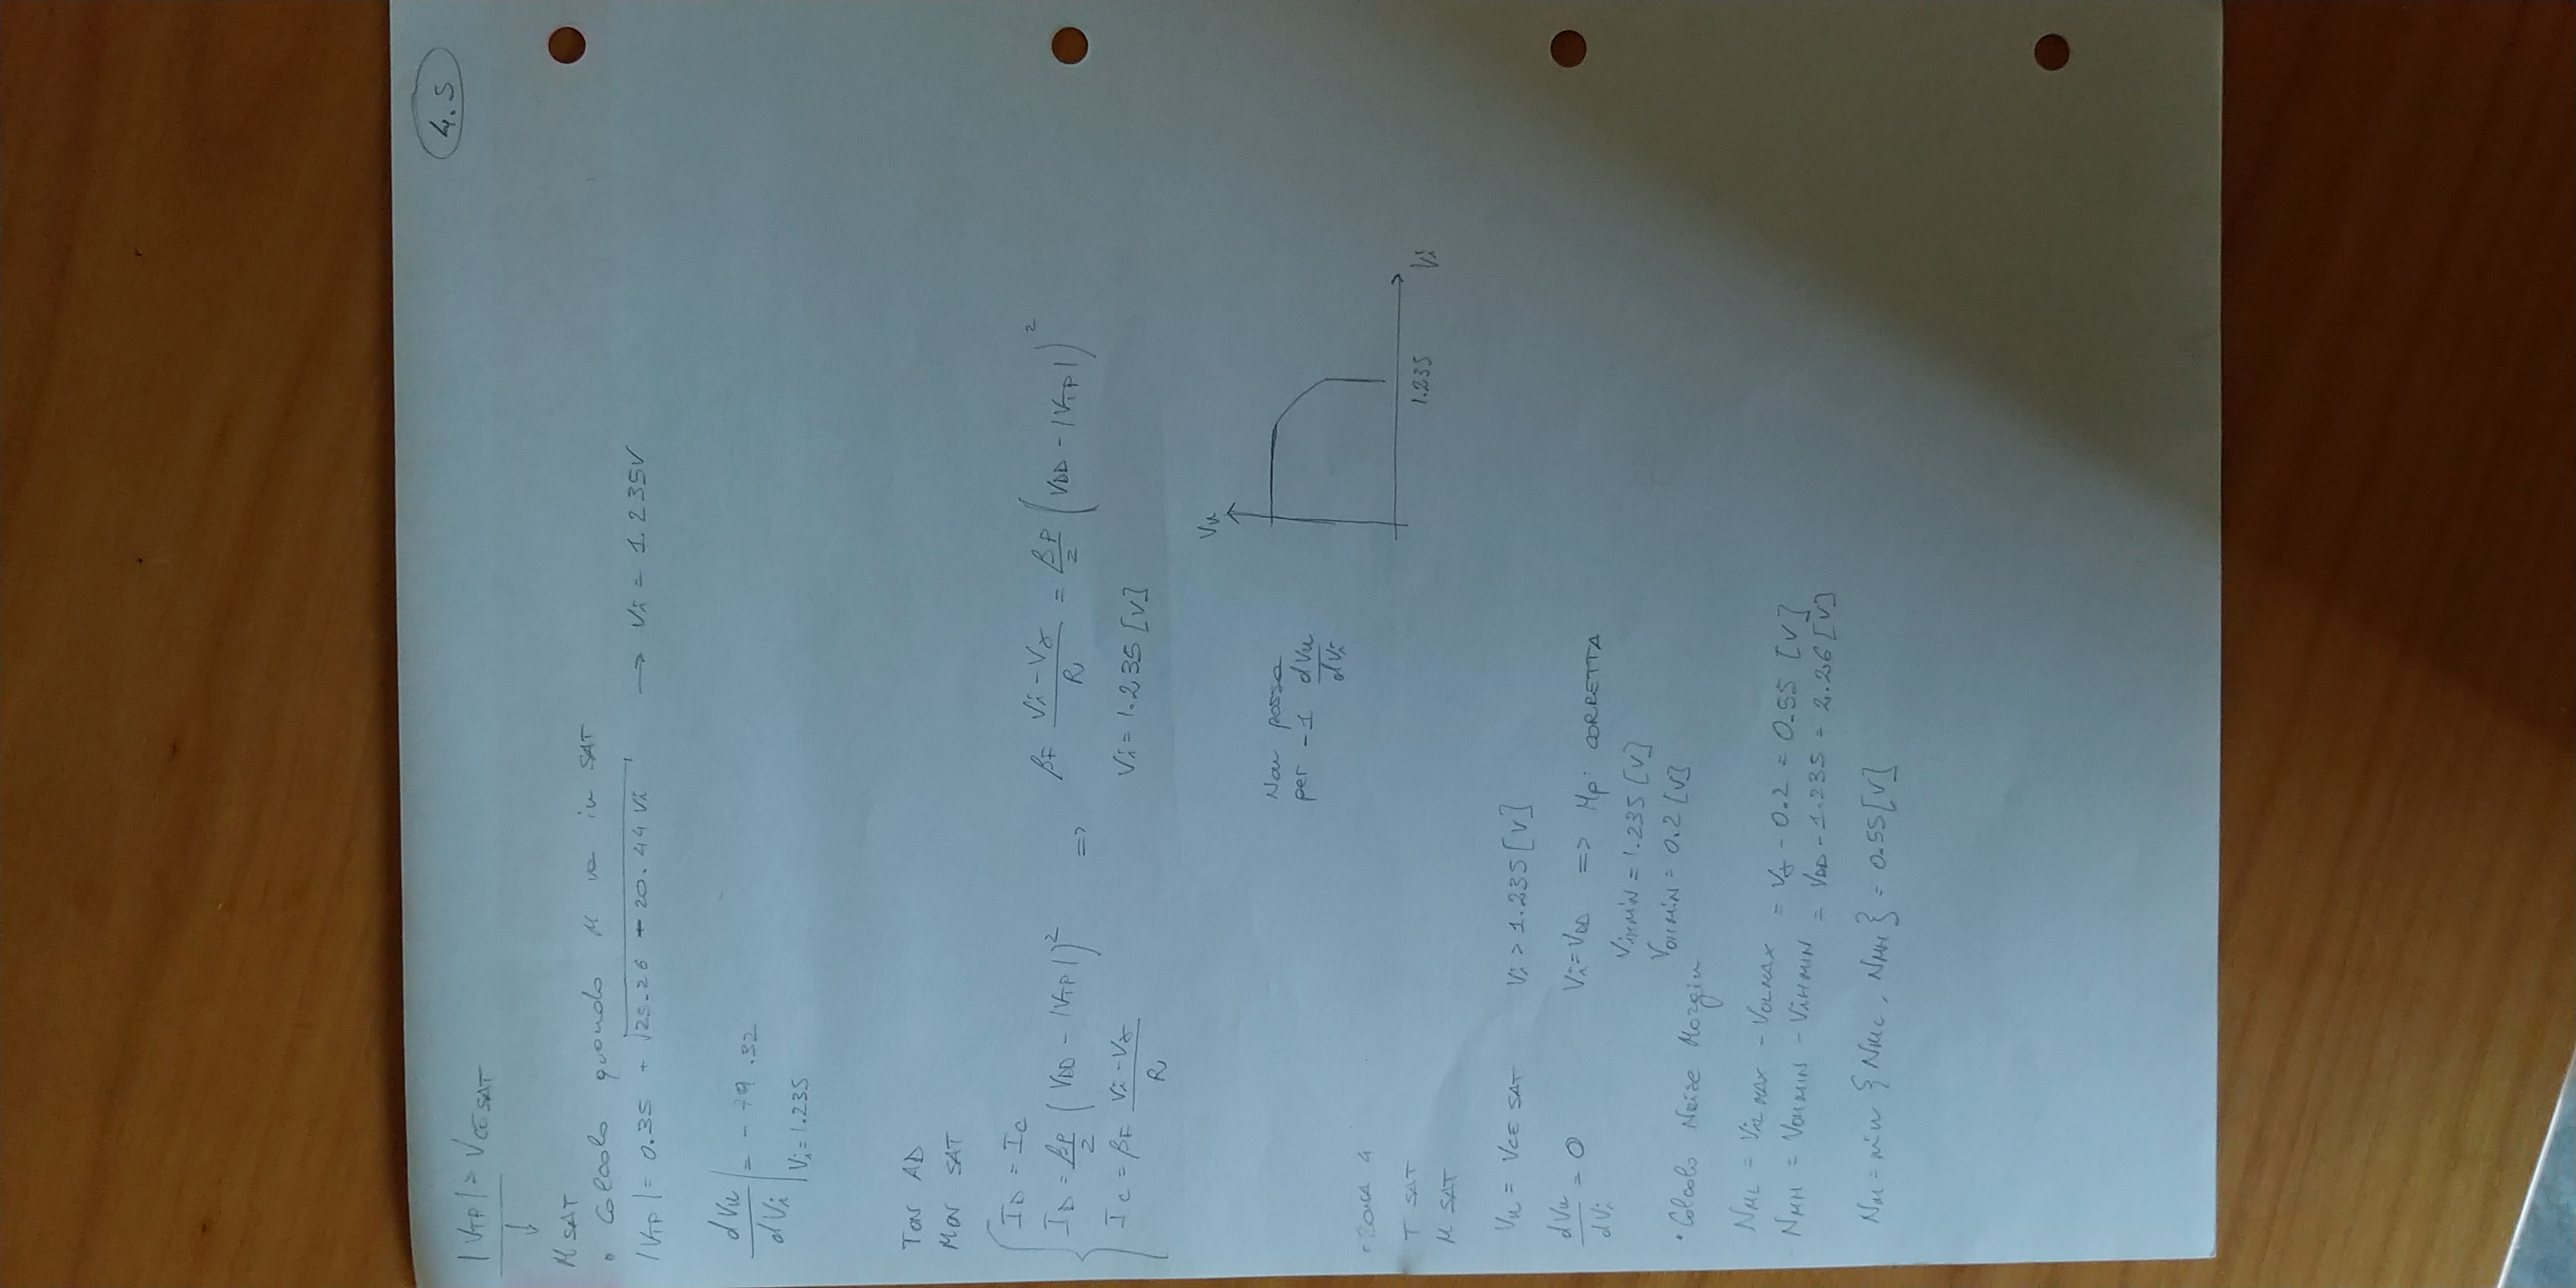 4.5
|VTP| > VCE SAT
↓
M SAT
• Calcolo quando M va in SAT
|VTP| = 0.35 + √(25.26 - 20.44 Vi) → Vi = 1.235V
dVu/dVi |Vi=1.235 = - 79.32
TON AD
MON SAT
ID = IC
ID = βP/2 (VDD - |VTP|)²
IC = βF (Vi - Vγ)/R
=> βF (Vi - Vγ)/R = βP/2 (VDD - |VTP|)²
Vi = 1.235 [V]
Vu
Non passa
per -1 dVu/dVi
1.235 Vi
• ZONA 4
T SAT
M SAT
Vu = VCE SAT Vi > 1.235 [V]
dVu/dVi = 0 Vi = VDD => Hp. CORRETTA
VIHMIN = 1.235 [V]
VOHMIN = 0.2 [V]
• Calcolo Noise Margin
NML = VILMAX - VOLMAX = Vγ - 0.2 = 0.55 [V]
NMH = VOHMIN - VIHMIN = VDD - 1.235 = 2.26 [V]
NM = min {NML, NMH} = 0.55 [V]